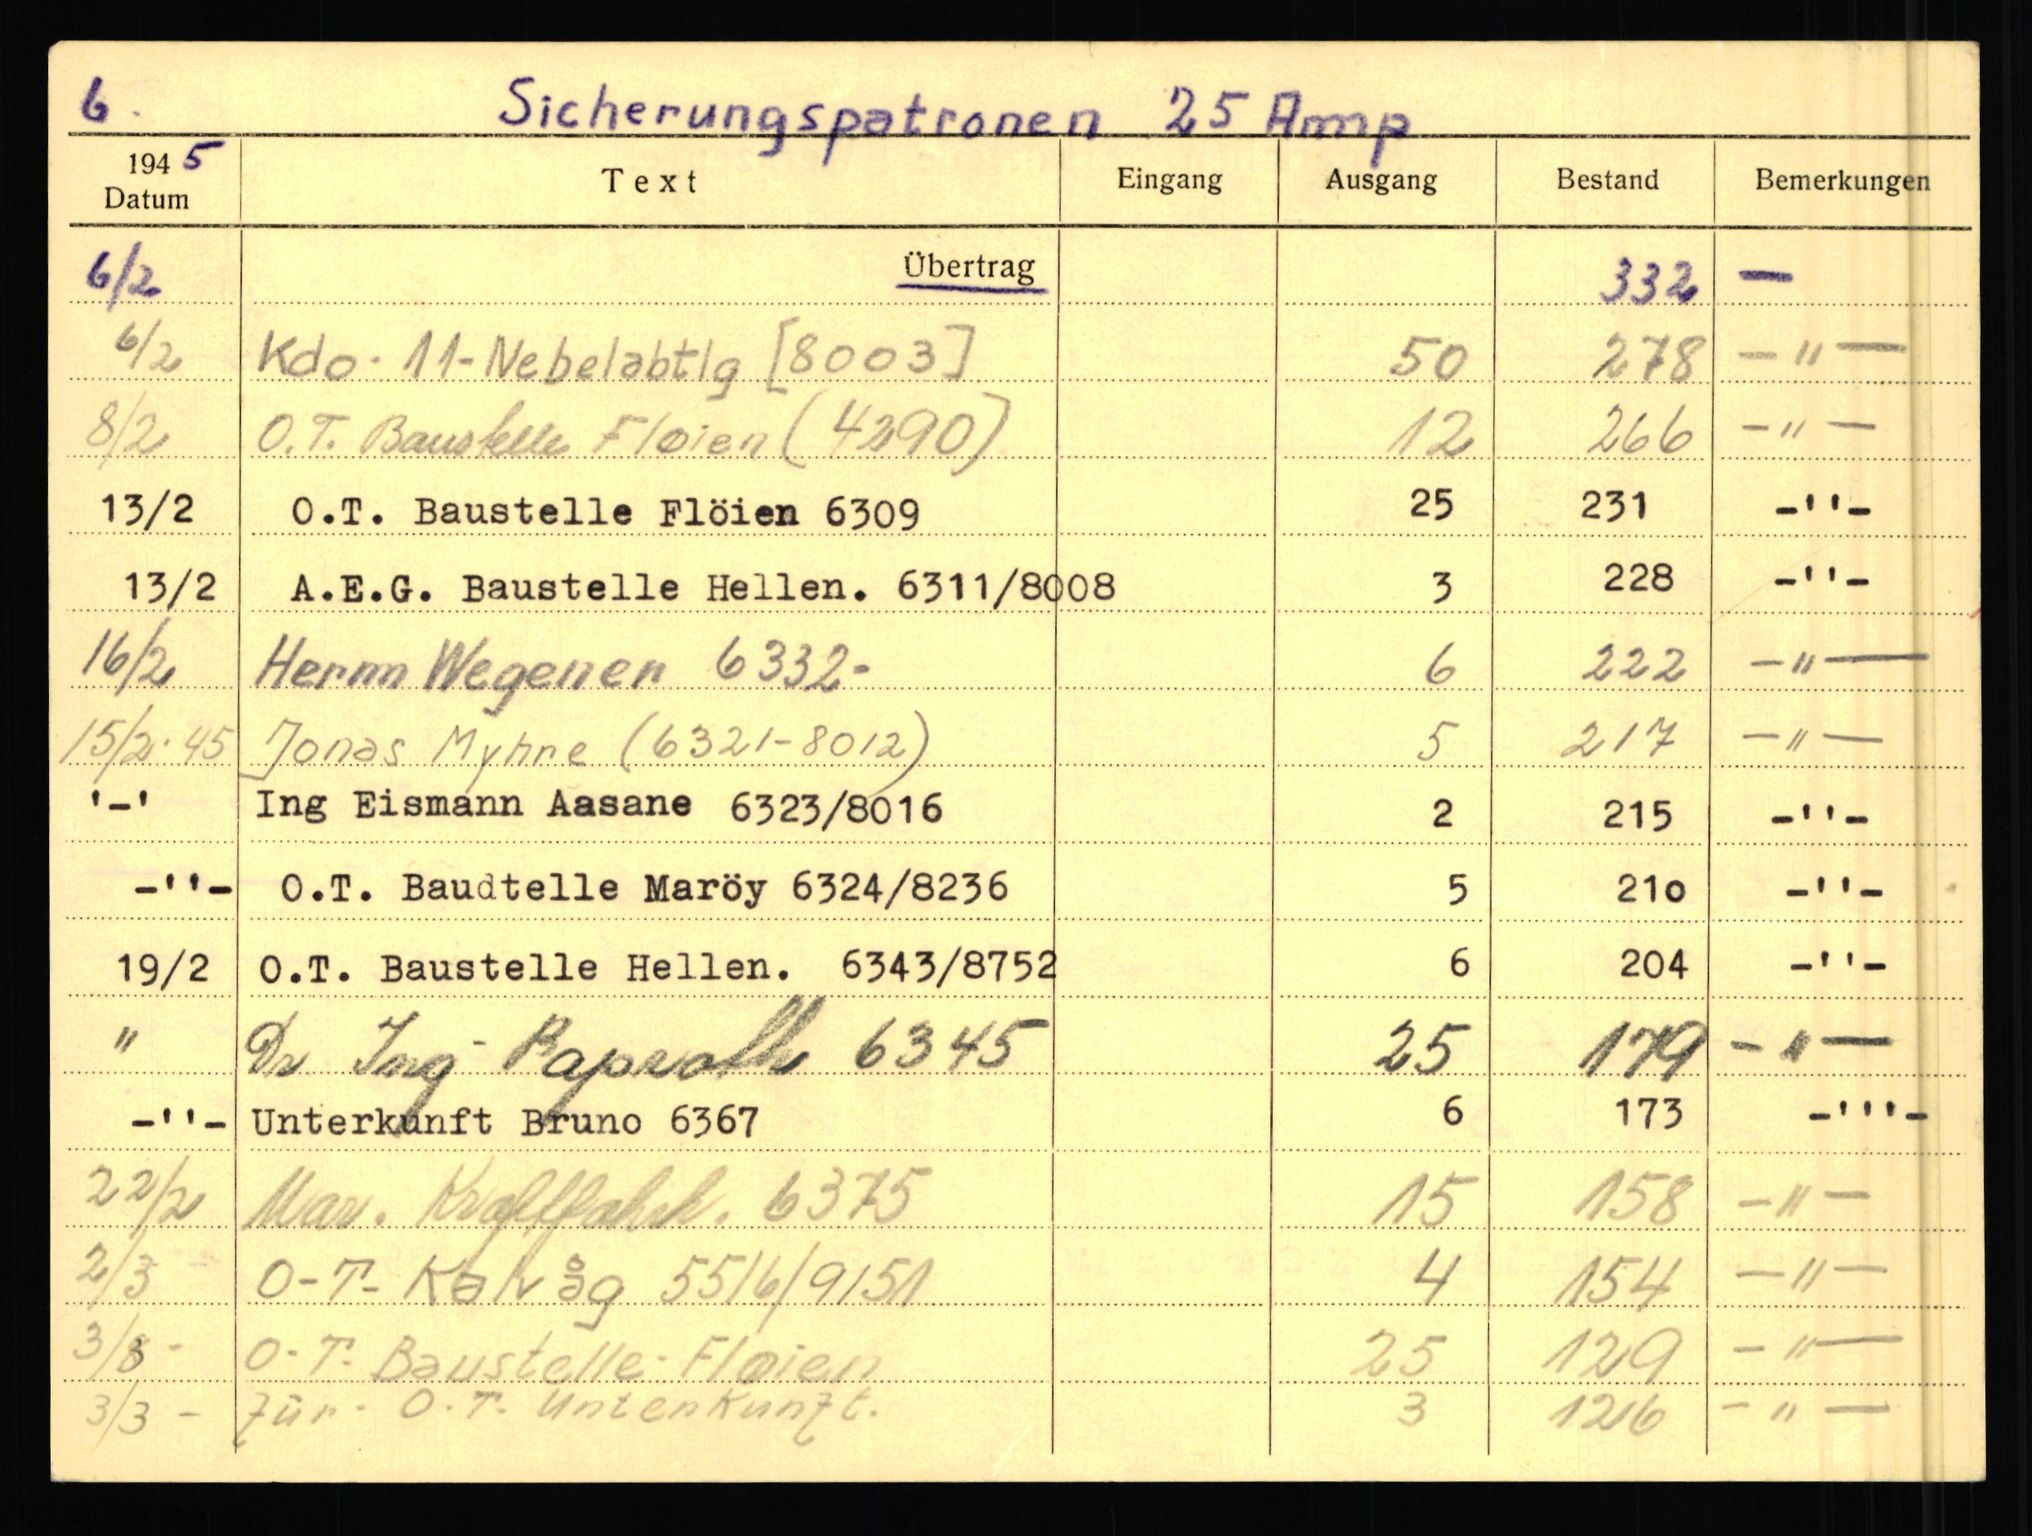 6. Sicherungspatronen 25 Amp
1945 Datum Text Eingang Ausgang Bestand Bemerkungen
6/2 Übertrag 332 —
6/2 Kdo. 11-Nebelabtlg [8003] 50 278 — " —
8/2 O.T. Baustelle Fløien (4290) 12 266 — " —
13/2 O.T. Baustelle Flöien 6309 25 231 -''-
13/2 A.E.G. Baustelle Hellen. 6311/8008 3 228 -''-
16/2 Herrn Wegener 6332- 6 222 — " —
15/2.45 Jonas Myhre (6321-8012) 5 217 — " —
'-' Ing Eismann Aasane 6323/8016 2 215 -''-
-''- O.T. Baudtelle Maröy 6324/8236 5 210 -''-
19/2 O.T. Baustelle Hellen. 6343/8752 6 204 -''-
" Dr Ing- Paproth 6345 25 179 — " —
-''- Unterkunft Bruno 6367 6 173 -'''-
22/2 Mar. 6375 15 158 — " —
2/3 O-T- Kalvåg 5516/9151 4 154 — " —
3/3 - O-T- Baustelle- Fløien 25 129 — " —
3/3 - für- O.T. Unterkunft. 3 126 — " —